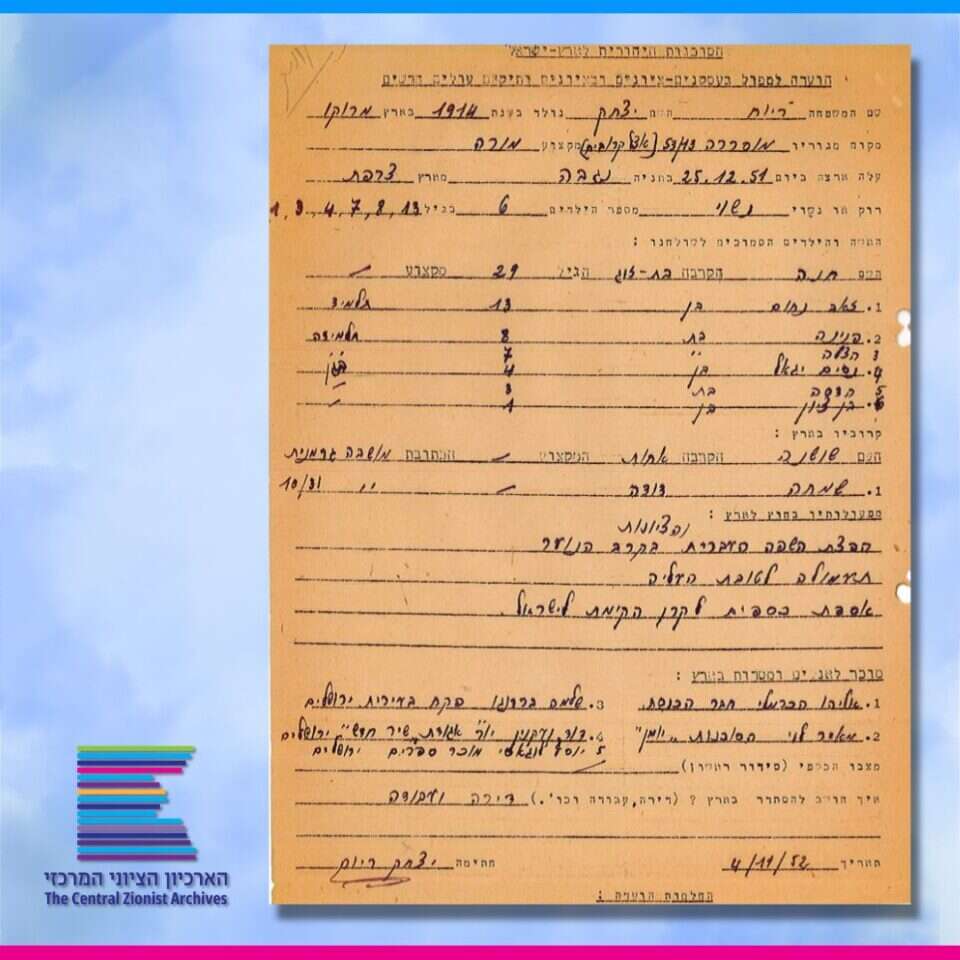 הסוכנות היהודית לארץ-ישראל
הועדה לטפול בעסקנים-ציונים ובציונים ותיקים עולים חדשים
שם המשפחה ריוח השם יצחק נולד בשנת 1914 בארץ מרוקו
מקום מגוריו מוסררה 53/43 מקצוע מורה
עלה ארצה ביום 25.12.51 באניה נגבה מארץ צרפת
רוק או נשוי נשוי מספר הילדים 6 בגיל 13, 8, 7, 4, 3, 1
האשה והילדים הסמוכים לשולחנו :
השם חנה הקרבה בת-זוג הגיל 29 מקצוע
1. זאב נחום בן 13 תלמיד
2. פנינה בת 8 תלמידה
3 הצלה " 7 "
4. נסים יגאל בן 4 בגן
5 הדסה בת 3
6. בן ציון בן 1
קרוביו בארץ :
השם שושנה הקרבה אחות המקצוע הכתובת מושבה גרמנית
1. שמחה דודה " 10/31
מפעולותיו בחוץ לארץ :
והציונות
הפצת השפה העברית בקרב הנוער
תעמולה לטובת העליה
אספת כספים לקרן הקימת לישראל.
מוכר לאנשים ומוסדות בארץ :
1. אליהו הכרמלי חבר הכנסת. 3. שלמה ברדוגו פקח בעירית ירושלים
2. מאיר לוי הסוכנות "יומן" 4. דוד יו"ר אגודת שיר חדש" ירושלים
5 יוסף מוכר ספרים ירושלים
מצבו הכספי (סידור ראשון)
איך חושב להסתדר בארץ ? (דירה, עבודה וכו'.) דירה ועבודה
תאריך 4/11/52 חתימה יצחק ריוח
המלצות הועדה :
הארכיון הציוני המרכזי
The Central Zionist Archives